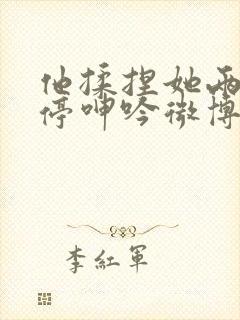 他揉捏她两
停呻吟微博
李红军